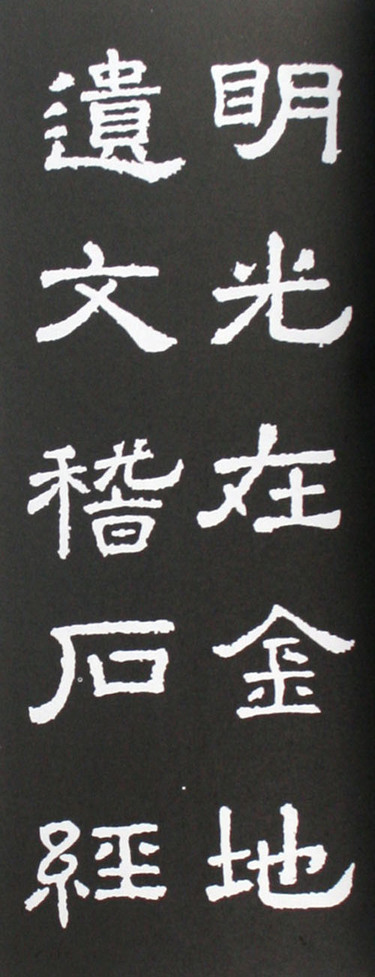 明光在金地
遺文稽石經